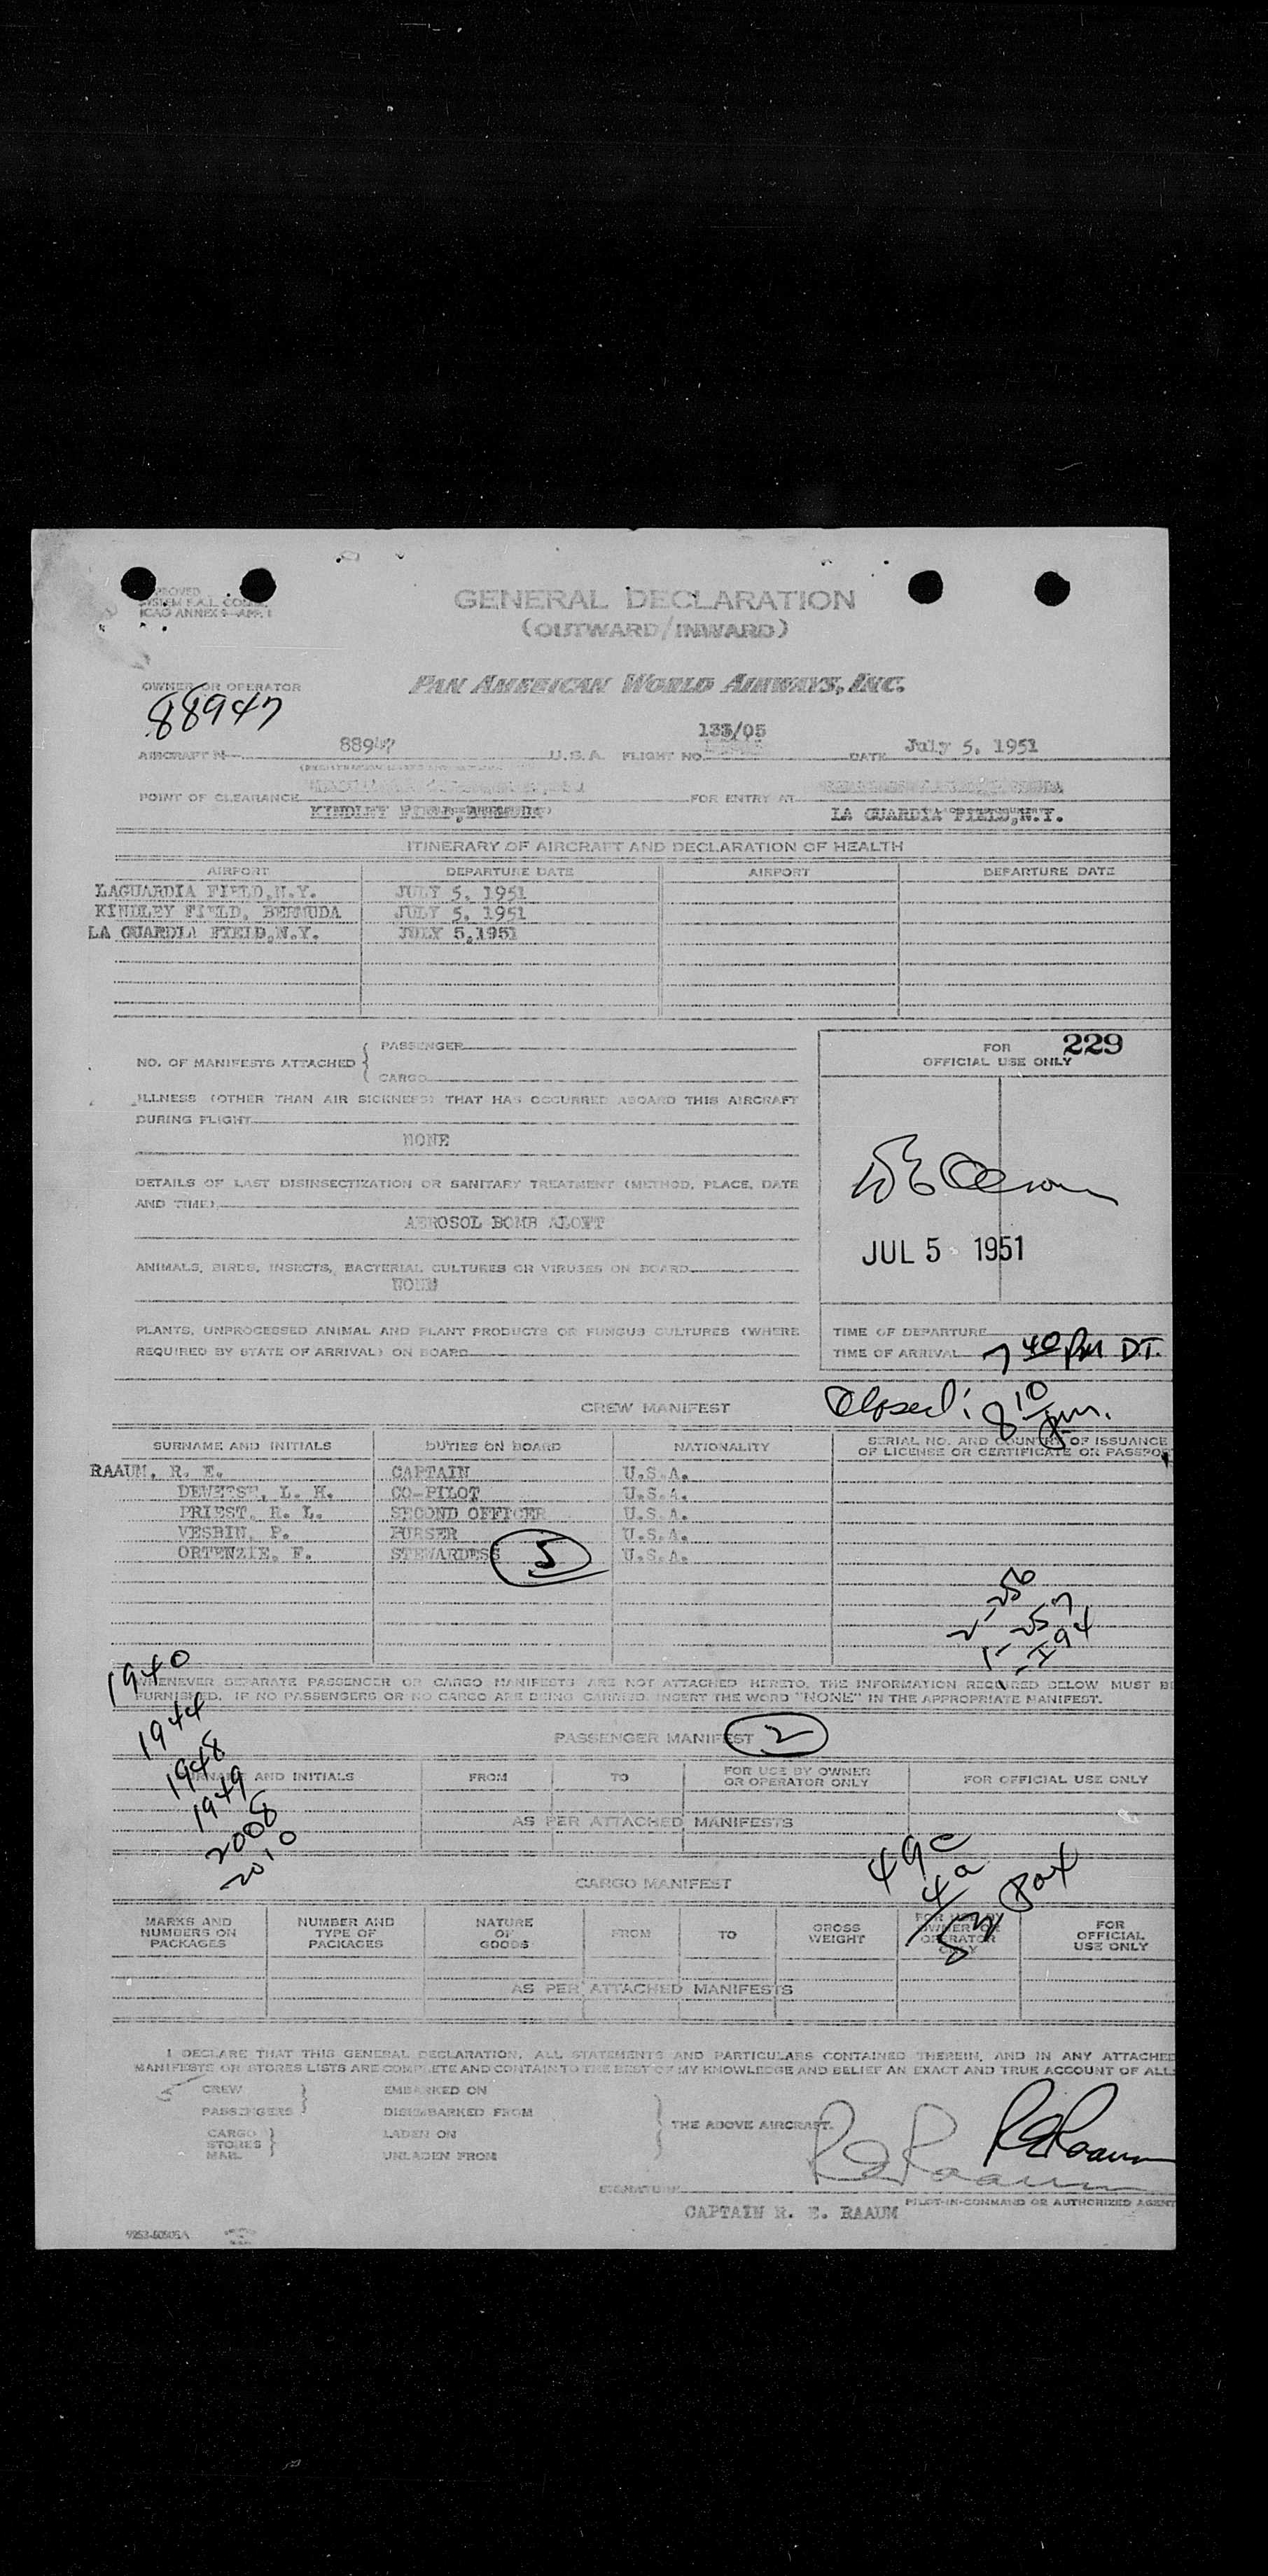 APPROVED
SYSTEM F.A.L. COM.
ICAO ANNEX 9—APP. 1
GENERAL DECLARATION
(OUTWARD/INWARD)
OWNER OR OPERATOR
PAN AMERICAN WORLD AIRWAYS, INC.
88947
133/05
AIRCRAFT N 88947 U.S.A. FLIGHT NO. DATE July 5, 1951
POINT OF CLEARANCE FOR ENTRY AT
KINDLEY FIELD, BERMUDA LA GUARDIA FIELD, N.Y.
ITINERARY OF AIRCRAFT AND DECLARATION OF HEALTH
AIRPORT DEPARTURE DATE AIRPORT DEPARTURE DATE
LAGUARDIA FIELD, N.Y. JULY 5, 1951
KINDLEY FIELD, BERMUDA JULY 5, 1951
LA GUARDIA FIELD, N.Y. JULY 5, 1951
NO. OF MANIFESTS ATTACHED { PASSENGER
CARGO
FOR OFFICIAL USE ONLY 229
ILLNESS (OTHER THAN AIR SICKNESS) THAT HAS OCCURRED ABOARD THIS AIRCRAFT
DURING FLIGHT
NONE
DETAILS OF LAST DISINSECTIZATION OR SANITARY TREATMENT (METHOD, PLACE, DATE
AND TIME)
AEROSOL BOMB ALOFT
JUL 5 1951
ANIMALS, BIRDS, INSECTS, BACTERIAL CULTURES OR VIRUSES ON BOARD
NONE
PLANTS, UNPROCESSED ANIMAL AND PLANT PRODUCTS OR FUNGUS CULTURES (WHERE
REQUIRED BY STATE OF ARRIVAL) ON BOARD
TIME OF DEPARTURE
TIME OF ARRIVAL 7 40 PM D.T.
Closed: 8 10 pm.
CREW MANIFEST
SURNAME AND INITIALS DUTIES ON BOARD NATIONALITY SERIAL NO. AND COUNTRY OF ISSUANCE
OF LICENSE OR CERTIFICATE OR PASSPO
RAAUM, R. E. CAPTAIN U.S.A.
DEWEESE, L. H. CO-PILOT U.S.A.
PRIEST, R. L. SECOND OFFICER U.S.A.
VESBIN, P. PURSER U.S.A.
ORTENZIE, F. STEWARDESS 5 U.S.A.
2-256
1-257
-I94
WHENEVER SEPARATE PASSENGER OR CARGO MANIFESTS ARE NOT ATTACHED HERETO, THE INFORMATION REQUIRED BELOW MUST BE
FURNISHED. IF NO PASSENGERS OR NO CARGO ARE BEING CARRIED, INSERT THE WORD "NONE" IN THE APPROPRIATE MANIFEST.
1940
1944
1948
1949
2008
2010
PASSENGER MANIFEST 2
SURNAME AND INITIALS FROM TO FOR USE BY OWNER
OR OPERATOR ONLY FOR OFFICIAL USE ONLY
AS PER ATTACHED MANIFESTS
49c
4a
53 Pax
CARGO MANIFEST
MARKS AND
NUMBERS ON
PACKAGES NUMBER AND
TYPE OF
PACKAGES NATURE
OF
GOODS FROM TO GROSS
WEIGHT FOR USE BY
OWNER OR
OPERATOR
ONLY FOR
OFFICIAL
USE ONLY
AS PER ATTACHED MANIFESTS
I DECLARE THAT THIS GENERAL DECLARATION, ALL STATEMENTS AND PARTICULARS CONTAINED THEREIN, AND IN ANY ATTACHED
MANIFESTS OR STORES LISTS ARE COMPLETE AND CONTAIN TO THE BEST OF MY KNOWLEDGE AND BELIEF AN EXACT AND TRUE ACCOUNT OF ALL
5 CREW } EMBARKED ON
PASSENGERS DISEMBARKED FROM
CARGO LADEN ON
STORES }
MAIL UNLADEN FROM
THE ABOVE AIRCRAFT.
R E Raaum R E Raaum
SIGNATURE
PILOT-IN-COMMAND OR AUTHORIZED AGENT
CAPTAIN R. E. RAAUM